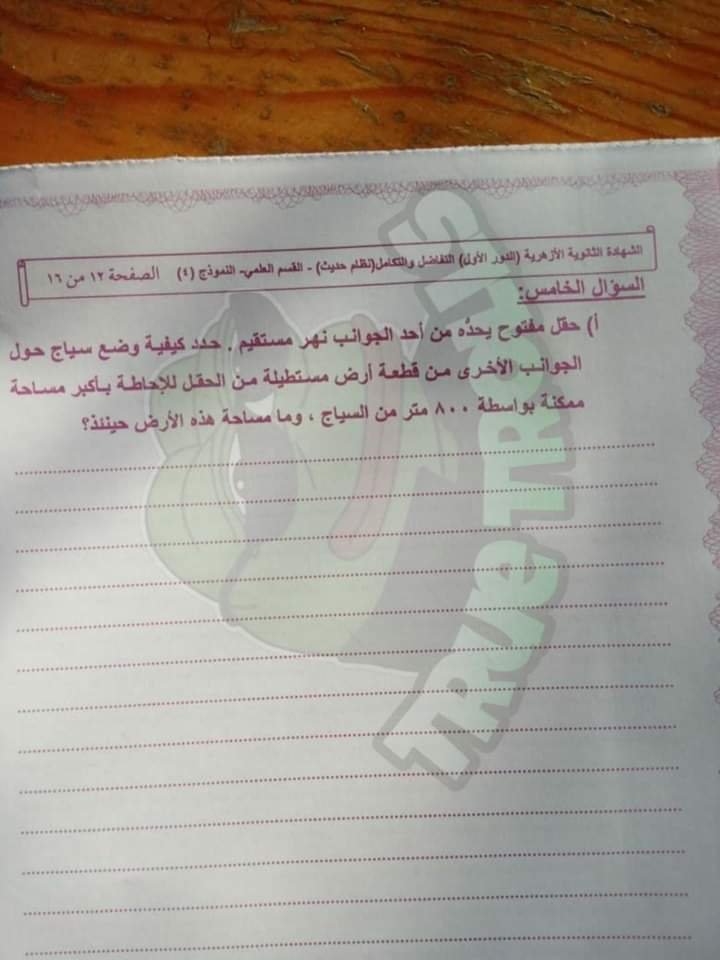 الشهادة الثانوية الأزهرية (الدور الأول) التفاضل والتكامل(نظام حديث) - القسم العلمي- النموذج (٤) الصفحة ١٢ من ١٦
السؤال الخامس:
أ) حقل مفتوح يحدُّه من أحد الجوانب نهر مستقيم . حدد كيفية وضع سياج حول
الجوانب الأخرى من قطعة أرض مستطيلة من الحقل للإحاطة بأكبر مساحة
ممكنة بواسطة ٨٠٠ متر من السياج ، وما مساحة هذه الأرض حينئذ؟